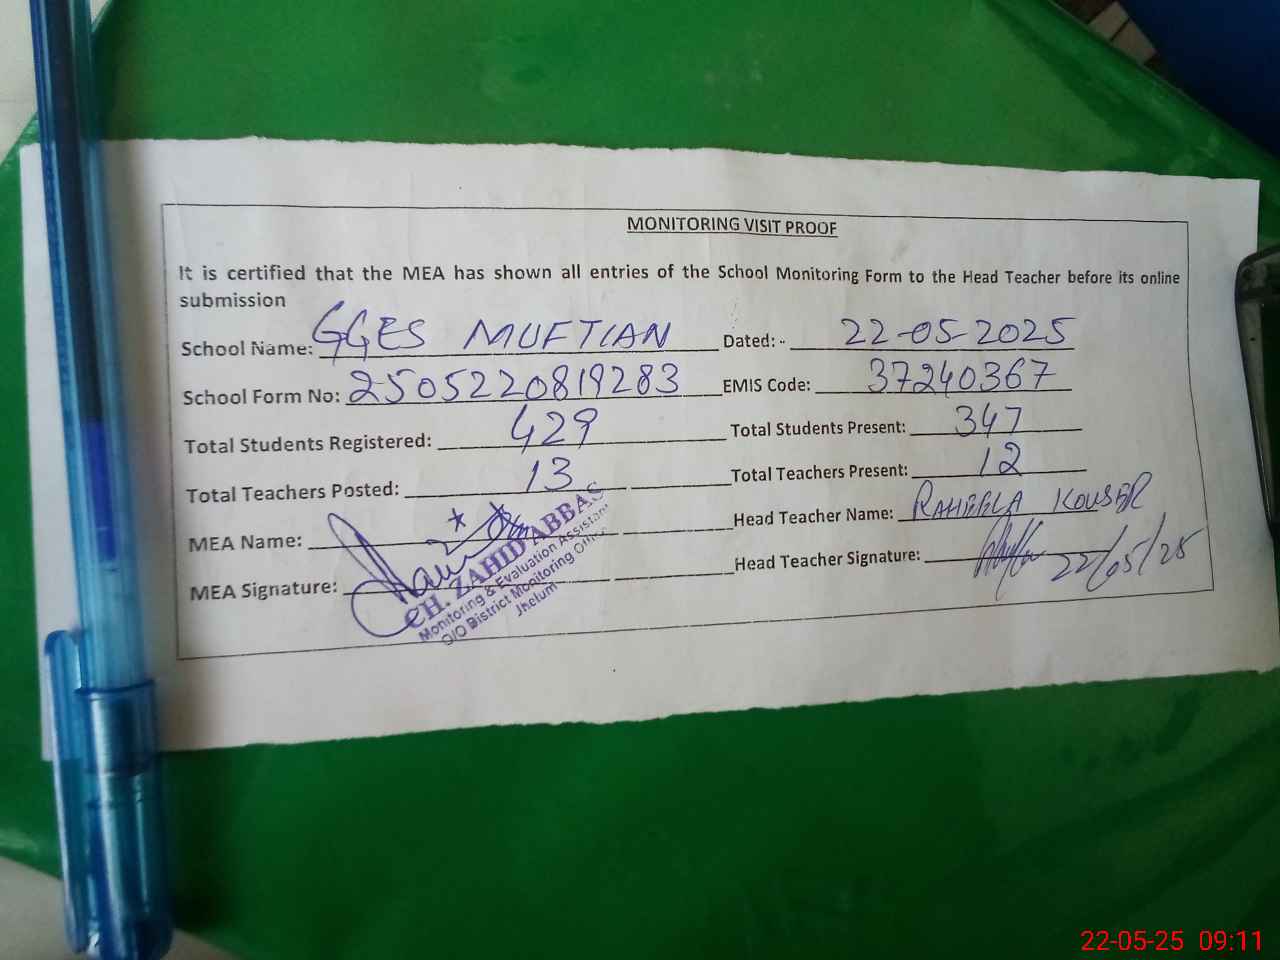 MONITORING VISIT PROOF
It is certified that the MEA has shown all entries of the School Monitoring Form to the Head Teacher before its online
submission
School Name: GGES MUFTIAN Dated: - 22-05-2025
School Form No: 2505220819283 EMIS Code: 37240367
Total Students Registered: 429 Total Students Present: 347
Total Teachers Posted: 13 Total Teachers Present: 12
MEA Name: Head Teacher Name: RAHEELA KOUSER
MEA Signature: Head Teacher Signature: 22/05/25
CH. ZAHID ABBAS
Monitoring & Evaluation Assistant
O/O District Monitoring Office
Jhelum
22-05-25 09:11